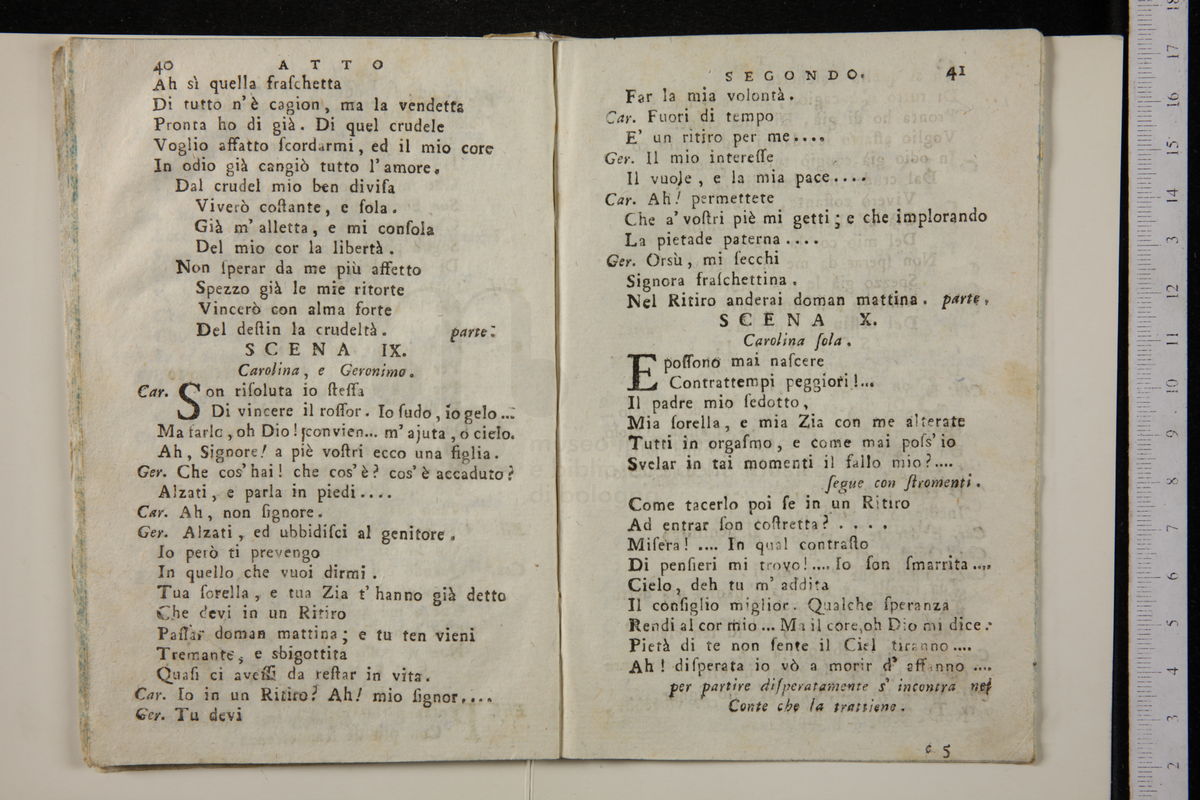 40 ATTO
Ah sì quella fraſchetta
Di tutto n'è cagion, ma la vendetta
Pronta ho di già. Di quel crudele
Voglio affatto ſcordarmi, ed il mio core
In odio già cangiò tutto l'amore.
Dal crudel mio ben diviſa
Viverò coſtante, e ſola.
Già m'alletta, e mi conſola
Del mio cor la libertà.
Non ſperar da me più affetto
Spezzo già le mie ritorte
Vincerò con alma forte
Del deſtin la crudeltà. parte.
SCENA IX.
Carolina, e Geronimo.
Car. Son riſoluta io ſteſſa
Di vincere il roſſor. Io ſudo, io gelo...
Ma farlo, oh Dio! ſconvien... m'ajuta, o cielo.
Ah, Signore! a piè voſtri ecco una figlia.
Ger. Che cos'hai! che cos'è? cos'è accaduto?
Alzati, e parla in piedi....
Car. Ah, non ſignore.
Ger. Alzati, ed ubbidiſci al genitore.
Io però ti prevengo
In quello che vuoi dirmi.
Tua ſorella, e tua Zia t'hanno già detto
Che devi in un Ritiro
Paſſar doman mattina; e tu ten vieni
Tremante, e sbigottita
Quaſi ci aveſſi da reſtar in vita.
Car. Io in un Ritiro? Ah! mio ſignor....
Ger. Tu devi
SEGONDO. 41
Far la mia volontà.
Car. Fuori di tempo
E' un ritiro per me....
Ger. Il mio intereſſe
Il vuole, e la mia pace....
Car. Ah! permettete
Che a' voſtri piè mi getti; e che implorando
La pietade paterna....
Ger. Orsù, mi ſecchi
Signora fraſchettina.
Nel Ritiro anderai doman mattina. parte.
SCENA X.
Carolina ſola.
E poſſono mai naſcere
Contrattempi peggiori!...
Il padre mio ſedotto,
Mia ſorella, e mia Zia con me alterate
Tutti in orgaſmo, e come mai poſs'io
Svelar in tai momenti il fallo mio?....
ſegue con ſtromenti.
Come tacerlo poi ſe in un Ritiro
Ad entrar ſon coſtretta? . . . .
Miſera! .... In qual contraſto
Di penſieri mi trovo!.... Io ſon ſmarrita....
Cielo, deh tu m'addita
Il conſiglio miglior. Qualche ſperanza
Rendi al cor mio... Ma il core, oh Dio mi dice:
Pietà di te non ſente il Ciel tiranno....
Ah! diſperata io vò a morir d'affanno....
per partire diſperatamente s'incontra nel
Conte che la trattiene.
c 5